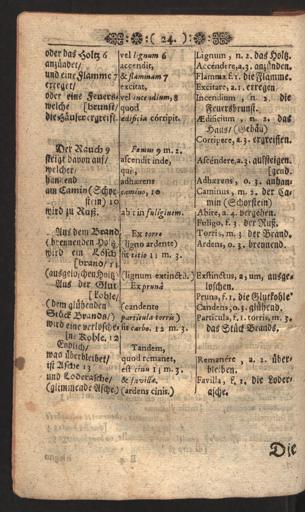 :( 24. ):
oder das Holtz 6
anzündet/
und eine Flamme 7
erreget/
oder eine Feuers-
welche [brunst/
die Häuser ergreifft.
Der Rauch 9
steigt davon auf/
welcher/
hangend
am Camin (Schor-
stein) 10
wird zu Ruß.
Aus dem Brand
(brennenden Holtz)
wird ein Lösch-
brand/ 11
(ausgelöschen Holtz)
Aus der Glut-
[kohle/
(dem glühenden
Stück Brands/)
wird eine verloschene
Kohle. 12
Endlich/
was überbleibet/
ist Asche 13
und Loderasche/
(glimmende Asche.)
vel lignum 6
accendit,
& flammam 7
excitat,
vel incendium, 8
quod
ædificia corripit.
Fumus 9 m. 2.
ascendit inde,
qui,
adhærens
camino, 10
abit in fuliginem.
Ex torre
(ligno ardente)
fit titio 11 m. 3.
(lignum extinctū.)
Ex prunâ
(candente
particula torris)
fit carbo. 12 m. 3.
Tandem,
quod remanet,
est cinis 13 m. 3.
& favilla.
(ardens cinis.)
Lignum, n. 2. das Holtz.
Accéndere, a. 3. anzünden.
Flamma f. 1. die Flamme.
Excitare, a. 1. erregen.
Incendium, n. 2. die
Feuersbrunst.
Ædificium, n. 2. das
Haus/ (Gebäu)
Corripere, a. 3. ergreiffen.
Ascéndere, a. 3. aufsteigen.
[gend.
Adhærens, o. 3. anhan-
Caminus, m. 2. der Ca-
min (Schorstein)
Abire, a. 4. vergehen.
Fuligo, f. 3. der Ruß.
Torris, m. 3. der Brand.
Ardens, o. 3. brennend.
Exstinctus, a, um, ausge-
loschen.
Pruna, f. 1. die Glutkohle
Candens, o. 3. glühend.
Particula, f. 1. torris, m. 3.
das Stück Brands.
Remanére, a. 2. über-
bleiben.
Favilla, f. 1. die Loder-
asche.
Die